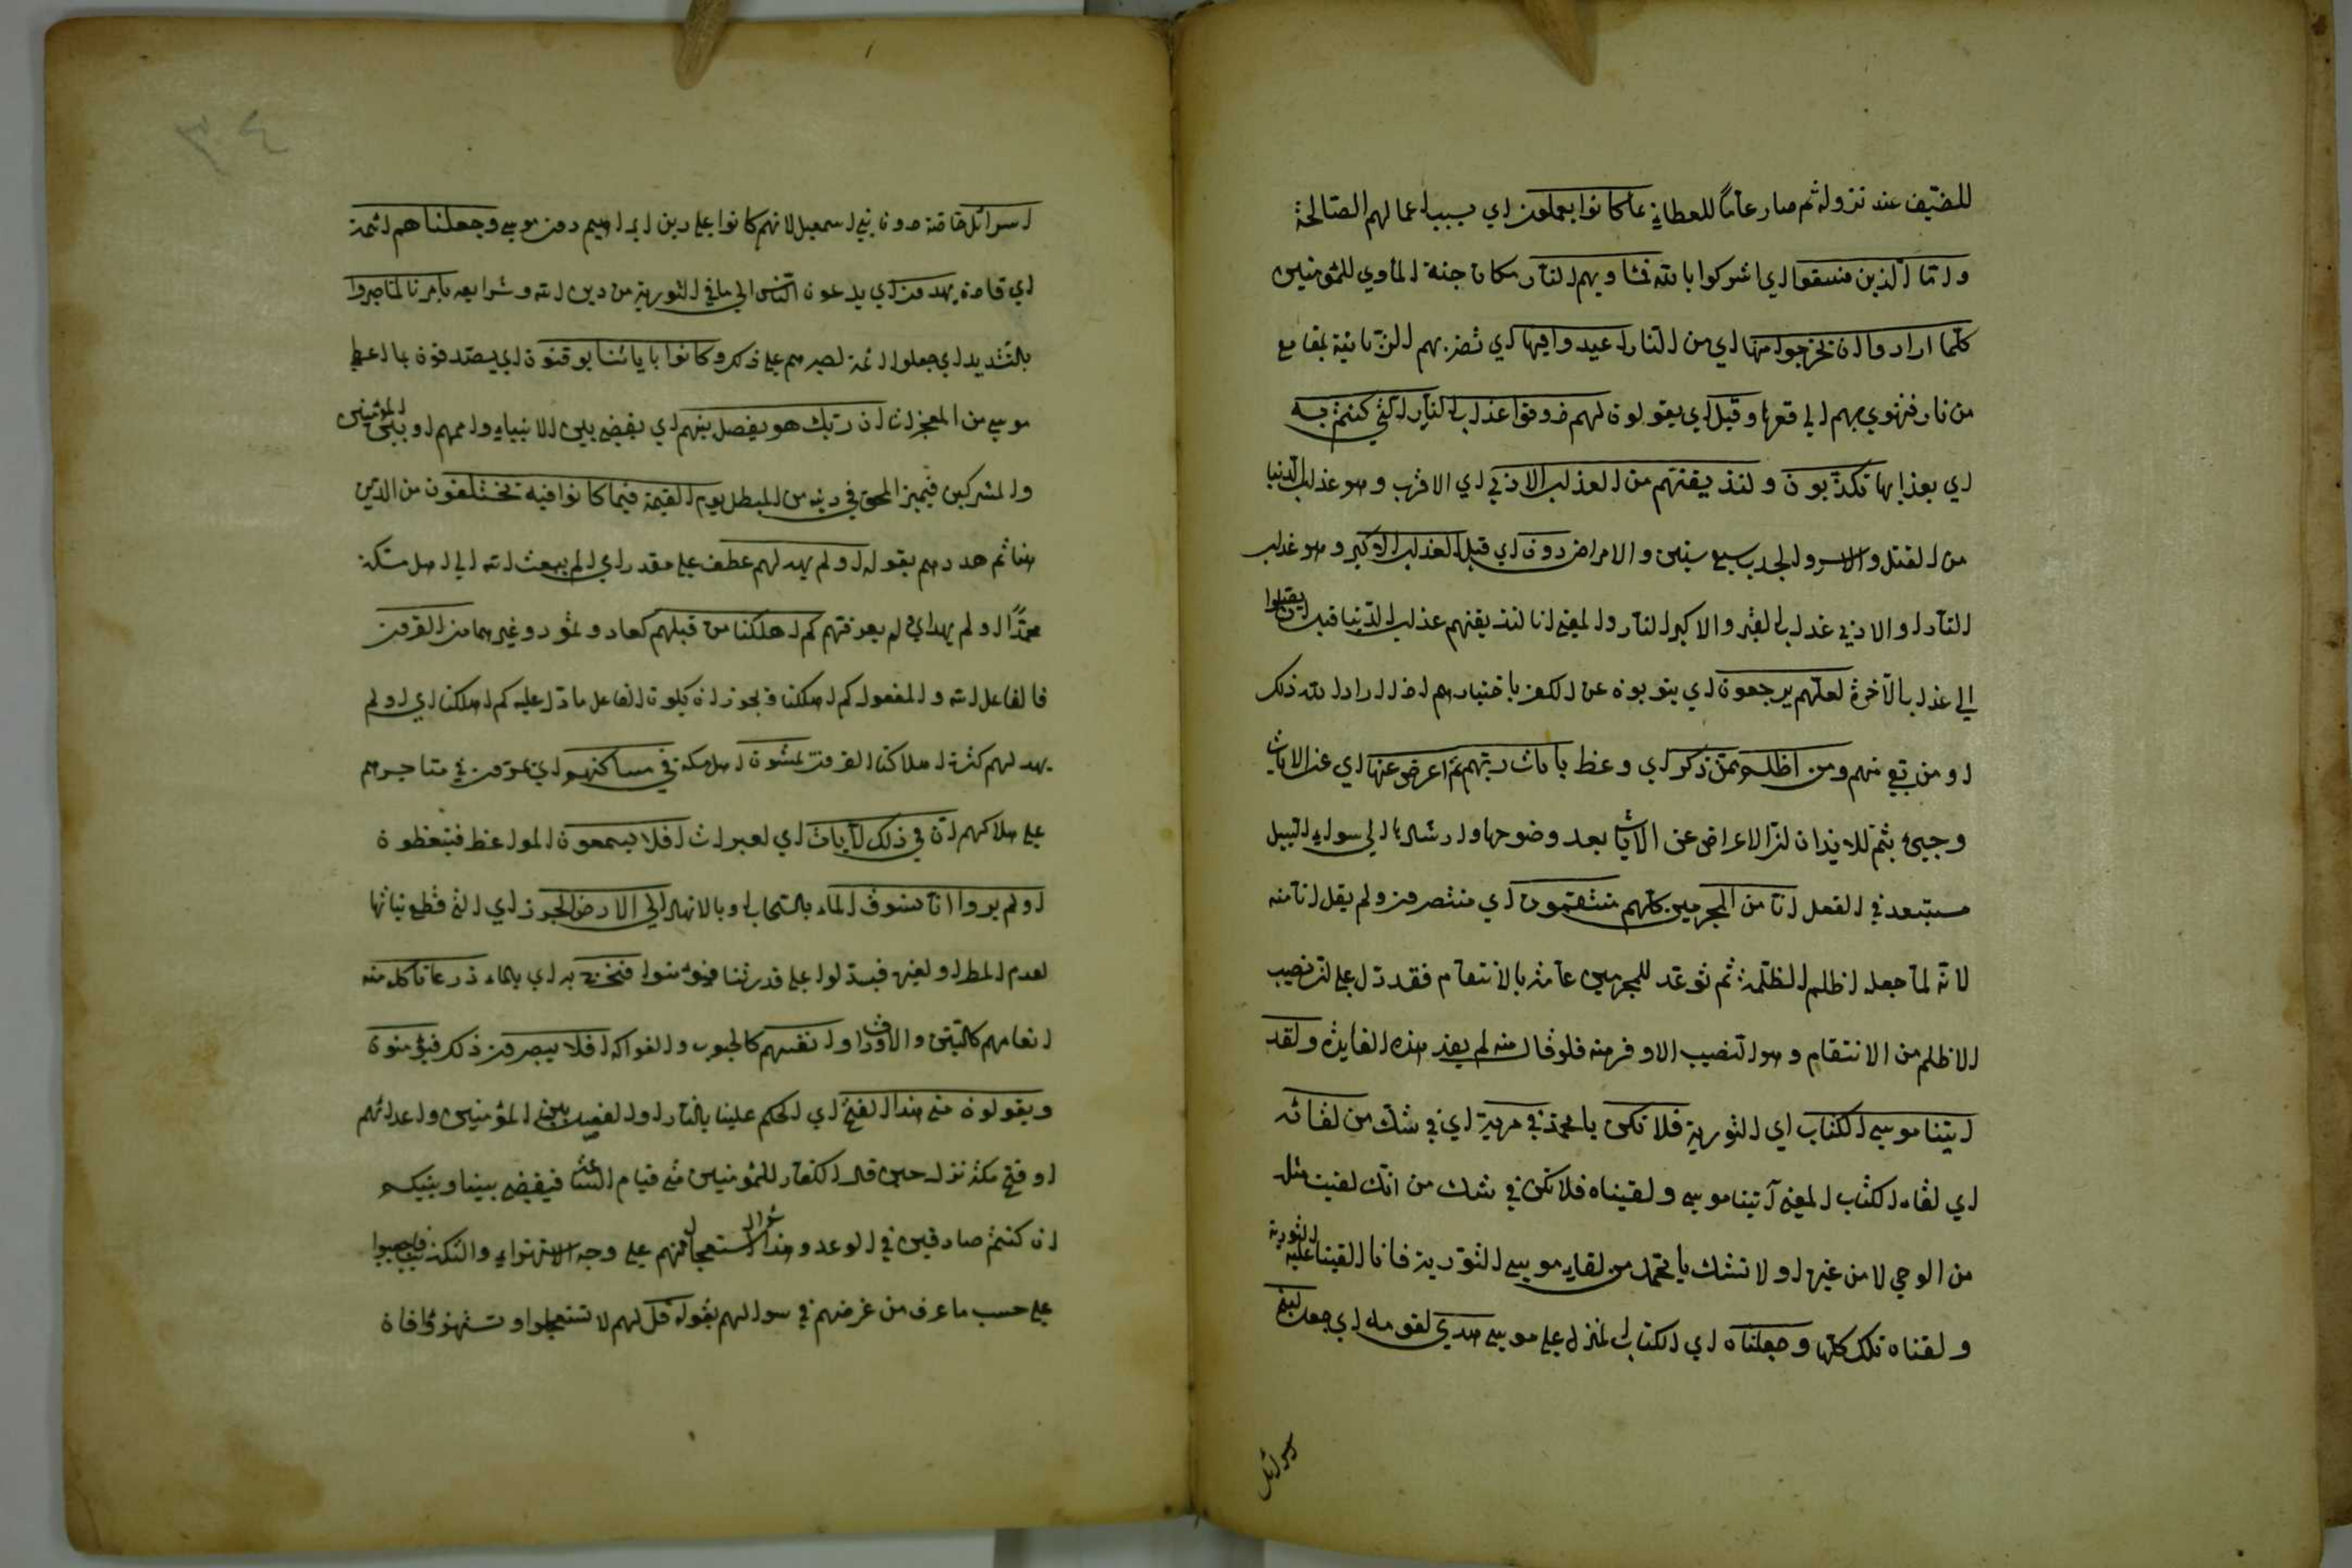 للضيف عند نزوله ثم صار عاما للعطاي عما كانوا يعملون اي بسبب اعمالهم الصالحة
واما الذين فسقوا اي اشركوا بالله فماويهم النار مكان جنة الماوي للمؤمنين
كلما ارادوا ان يخرجوا منها اي من النار اعيدوا فيها اي تضربهم الزبانية بمقامع
من نار فتهوي بهم الي قعرها وقيل اي يقولون لهم ذوقوا عذاب النار الذي كنتم به
اي بعذابها تكذبون ولنذيقنهم من العذاب الادني اي الاقرب وهو عذاب الدنيا
من القتل والاسر والجدب سبع سنين والامراض دون اي قبل العذاب الاكبر وهو عذاب
النار او الادني عذاب القبر والاكبر النار والمعني انا لنذيقنهم عذاب الدنيا قبل ان يقبلوا
الي عذاب الآخرة لعلهم يرجعون اي يتوبون عن الكفر باختيارهم اذ اراد الله ذلك
او من بقي منهم ومن اظلم ممن ذكر اي وعظ بايات ربهم ثم اعرض عنها اي عن الايات
وجيئ بثم للايذان لان الاعراض عن الايات بعد وضوحها وارشادها الي سواء السبيل
مستبعد في العقل انا من المجرمين كلهم منتقمون اي منتصرون ولم يقل انا منه
لانه لما جعل اظلم الظلمة ثم توعد للمجرمين عامة بالانتقام فقد دل علي ان نصيب
الاظلم من الانتقام وهو النصيب الاوفر منه فلو قال منه لم يفد هذه الفايدة ولقد
اتينا موسي الكتاب اي التورية فلا تكن يا محمد في مرية اي في شك من لقائه
اي لقاء الكتاب المعني آتينا موسي ولقيناه فلا تكن في شك من انك لقيت مثله
من الوحي لا من غيره او لا تشك يا محمد من لقاء موسي التورية فانا القينا عليه التورية
ولقناه تلك كلها وجعلناه اي الكتاب المنزل علي موسي هدي لقومه اي جعل لبني
اسرائل
٣٤
اسرائل خاصة دون بني اسمعيل لانهم كانوا علي دين ابراهيم دون موسي وجعلناهم ائمة
اي قادة يهدون اي يدعون الناس الي ما في التورية من دين الله وشرايعه بامرنا لما صبروا
بالتشديد اي جعلوا ائمة لصبرهم علي ذلك وكانوا باياتنا يوقنون اي يصدقون بما اعطي
موسي من المعجزات ان ربك هو يفصل بينهم اي يقضي بين الانبياء وامهم او بين المؤمنين
والمشركين فيميز المحق في دينه من المبطل يوم القيمة فيما كانوا فيه يختلفون من الدين
هنا ثم هددهم بقوله اولم يهد لهم عطف علي مقدر اي الم يبعث الله الي اهل مكة
محمدا اولم يهد اي لم يعرفهم كم اهلكنا من قبلهم كعاد وثمود وغيرهما من القرون
فالفاعل الله والمفعول كم اهلكنا ويجوز ان يكون الفاعل ما دل عليه كم اهلكنا اي اولم
يهد لهم كثرة اهلاكنا القرون يمشون اهل مكة في مساكنهم اي يمرون في متاجرهم
علي هلاكهم ان في ذلك لآيات اي لعبرات افلا يسمعون المواعظ فيتعظون
اولم يروا انا نسوق الماء بالسحاب او بالانهار الي الارض الجرز اي التي قطع نباتها
لعدم المطر او لغيره فيستدلوا علي قدرتنا فيؤمنوا فنخرج به اي بالماء ذرعا تاكل منه
انعامهم كالتبن والاوراق وانفسهم كالحبوب والفواكه افلا يبصرون ذلك فيؤمنون
ويقولون متي هذا الفتح اي الحكم علينا بالنار او الفصل بين المؤمنين واعدائهم
او فتح مكة نزل حين قال الكفار للمؤمنين متي قيام الساعة فيقضي بيننا وبينكم
ان كنتم صادقين في الوعد وهذا السوال الاستعجال منهم علي وجه الاستهزاء والتكذيب فاجيبوا
علي حسب ما عرف من غرضهم في سوالهم بقوله قل لهم لا تستعجلوا وتستهزؤا فان